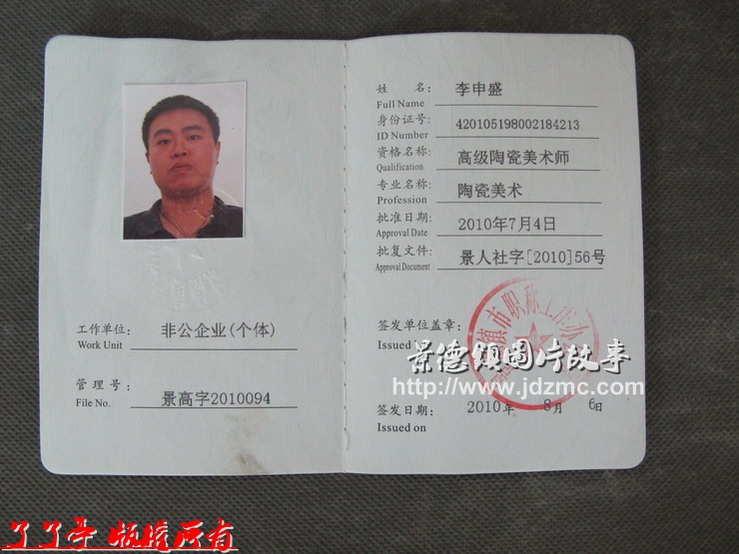 工作单位: 非公企业(个体)
Work Unit
管 理 号: 景高字2010094
File No.
姓 名: 李申盛
Full Name
身份证号: 420105198002184213
ID Number
资格名称: 高级陶瓷美术师
Qualification
专业名称: 陶瓷美术
Profession
批准日期: 2010年7月4日
Approval Date
批复文件: 景人社字[2010]56号
Approval Document
镇市职称工作办
签发单位盖章:
Issued
景德镇图片故事
http://www.jdzmc.com
签发日期: 2010年 8月 6日
Issued on
了了亭 版权所有